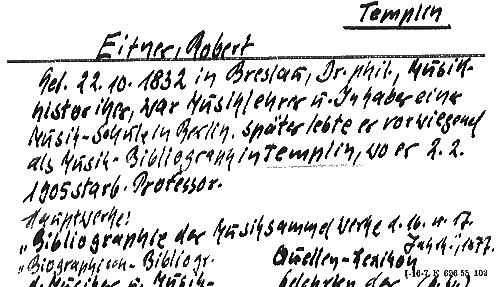 Templin
Eitner, Robert
Gel. 22.10.1832 in Breslau, Dr. phil., Musik-
historiker, war Musiklehrer u. Inhaber einer
Musik-Schule in Berlin. später lebte er vorwiegend
als Musik-Bibliograph in Templin, wo er 2.2.
1905 starb. Professor.
Hauptwerke:
„Bibliographie der Musiksammelwerke d. 16. u. 17.
Jahrh.", 1877.
„Biographisch-Bibliogr. Quellen-Lexikon
d. Musiker u. Musik- gelehrten der